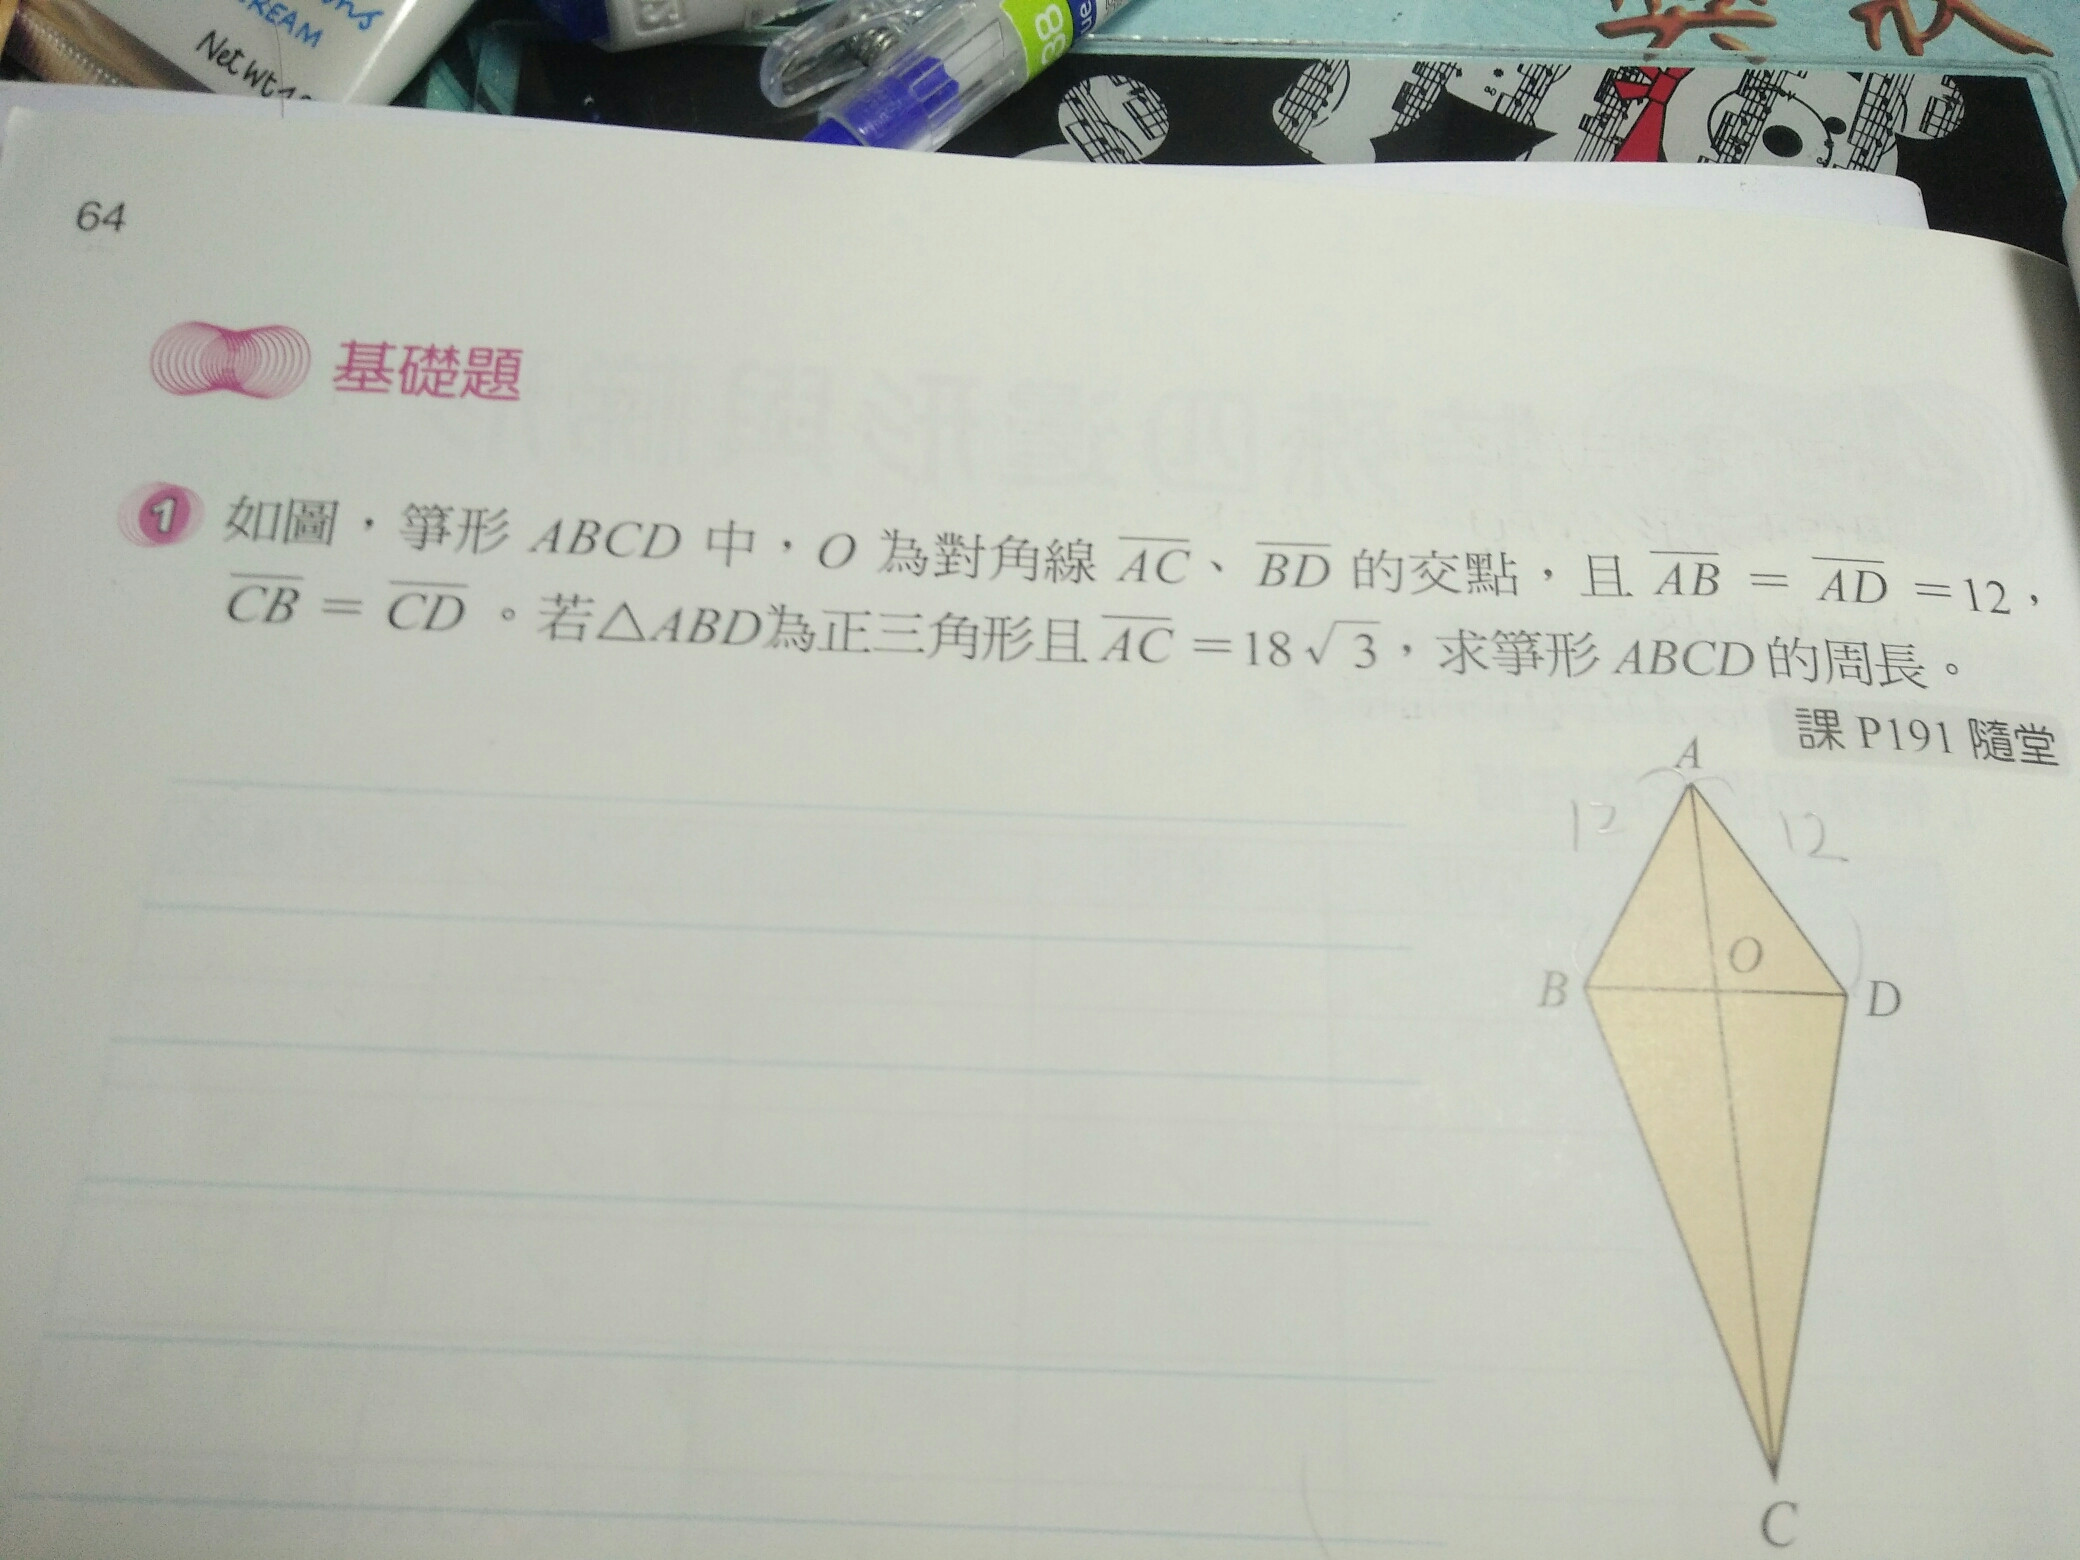 CREAM
Net Wt
38
64
基礎題
1 如圖，箏形 ABCD 中，O 為對角線 AC、BD 的交點，且 AB = AD =12，
CB = CD。若△ABD為正三角形且 AC =18√3，求箏形 ABCD 的周長。
課 P191 隨堂
A
12
12
O
B
D
C